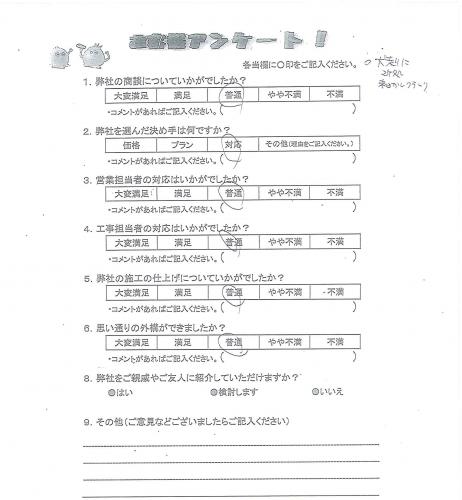 お客様アンケート！
各当欄に〇印をご記入ください。
1. 弊社の商談についていかがでしたか？
大変満足 満足 普通 やや不満 不満
・コメントがあればご記入ください。( )
2. 弊社を選んだ決め手は何ですか？
価格 プラン 対応 その他(理由をご記入ください。)
・コメントがあればご記入ください。( )
3. 営業担当者の対応はいかがでしたか？
大変満足 満足 普通 やや不満 不満
・コメントがあればご記入ください。( )
4. 工事担当者の対応はいかがでしたか？
大変満足 満足 普通 やや不満 不満
・コメントがあればご記入ください。( )
5. 弊社の施工の仕上げについていかがでしたか？
大変満足 満足 普通 やや不満 不満
・コメントがあればご記入ください。( )
6. 思い通りの外構ができましたか？
大変満足 満足 普通 やや不満 不満
・コメントがあればご記入ください。( )
8. 弊社をご親戚やご友人に紹介していただけますか？
◎はい ◎検討します ◎いいえ
9. その他(ご意見などございましたらご記入ください)